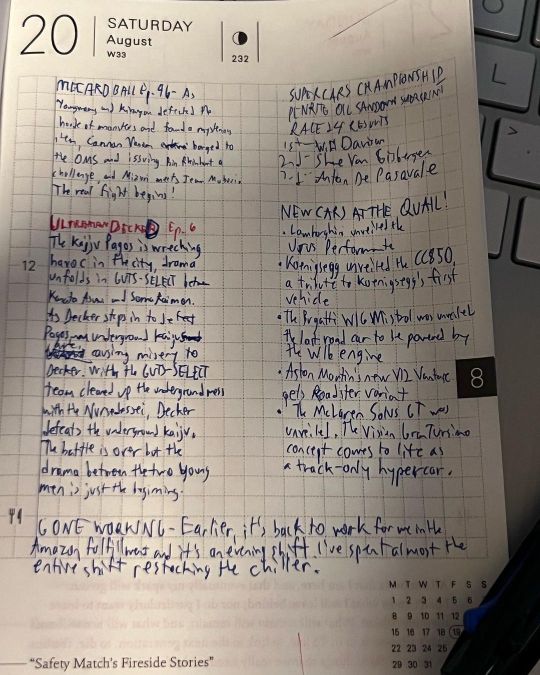 20
SATURDAY
August
W33
232
MECARD BALL Ep. 96 - As
and defeated the
horde of monsters and found a mysterious
item, Cannon Vanon barged to
the OMS and issuing a
challenge, and Mizmi meets Jean
The real fight begins!
ULTRAMAN DECKER Ep. 6
The Kaiju Pagos is wrecking
havoc in the city, drama
unfolds in GUTS-SELECT between
Kaito and Soma Raimon.
As Decker steps in to defeat
Pagos, underground kaiju
are causing misery to
Decker. With the GUTS-SELECT
team cleared up the underground mess
with the Nursedessei, Decker
defeats the underground kaiju.
The battle is over but the
drama between the two young
men is just the beginning.
SUPERCARS CHAMPIONSHIP
PENRITE OIL SANDOWN SUPERSPRINT
RACE 24 RESULTS
1st - Will Davison
2nd - Shane Van Gisbergen
3rd - Anton De Pasquale
NEW CARS AT THE QUAIL!
• Lamborghini unveiled the
Urus Performante
• Koenigsegg unveiled the CC850,
a tribute to Koenigsegg's first
vehicle
• The Bugatti W16 Mistral was unveiled
the last road car to be powered by
the W16 engine
• Aston Martin's new V12 Vantage
gets Roadster variant
• The McLaren Solus GT was
unveiled. The Vision Gran Turismo
concept comes to life as
a track-only hypercar.
12
8
GONE WORKING - Earlier, it's back to work for me in the
Amazon fulfillment and it's an evening shift. I've spent almost the
entire shift restocking the chiller.
M T W T F S S
1 2 3 4 5 6
8 9 10 11 12
15 16 17 18 19
22 23 24 25
29 30 31
— "Safety Match's Fireside Stories"